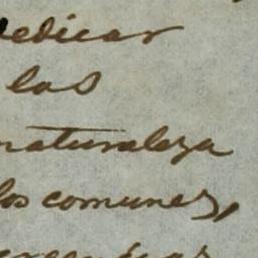 dedicar
las
naturaleza
los comunes,